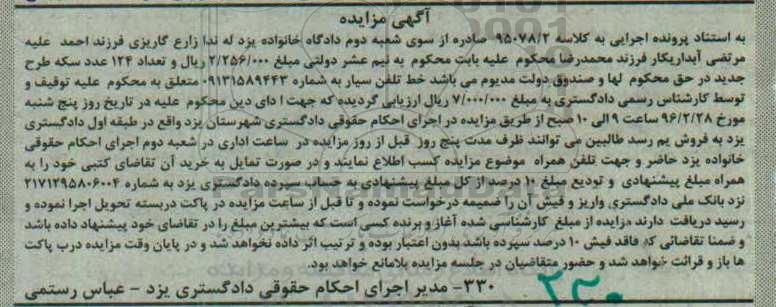 آگهی مزایده
به استناد پرونده اجرایی به کلاسه ۹۵۰۷۸/۲ صادره از سوی شعبه دوم دادگاه خانواده یزد له ندا زارع گاریزی فرزند احمد علیه
مرتضی آبداریکار فرزند محمدرضا محکوم علیه بابت محکوم به نیم عشر دولتی مبلغ ۲/۲۵۶/۰۰۰ ریال و تعداد ۱۲۴ عدد سکه طرح
جدید در حق محکوم لها و صندوق دولت مدیوم می باشد خط تلفن سیار به شماره ۰۹۱۳۱۵۸۹۴۴۳ متعلق به محکوم علیه توقیف و
توسط کارشناس رسمی دادگستری به مبلغ ۷/۰۰۰/۰۰۰ ریال ارزیابی گردیده که جهت ا دای دین محکوم علیه در تاریخ روز پنج شنبه
مورخ ۹۶/۲/۲۸ ساعت ۹ الی ۱۰ صبح از طریق مزایده در اجرای احکام حقوقی دادگستری شهرستان یزد واقع در طبقه اول دادگستری
یزد به فروش یم رسد طالبین می توانند ظرف مدت پنج روز قبل از روز مزایده در ساعت اداری در شعبه دوم اجرای احکام حقوقی
خانواده یزد حاضر و جهت تلفن همراه موضوع مزایده کسب اطلاع نمایند و در صورت تمایل به خرید آن تقاضای کتبی خود را به
همراه مبلغ پیشنهادی و تودیع مبلغ ۱۰ درصد از کل مبلغ پیشنهادی به حساب سپرده دادگستری یزد به شماره ۲۱۷۱۲۹۵۸۰۶۰۰۴
نزد بانک ملی دادگستری واریز و فیش آن را ضمیمه درخواست نموده و تا قبل از ساعت مزایده در پاکت دربسته تحویل اجرا نموده و
رسید دریافت دارند مزایده از مبلغ کارشناسی شده آغاز و برنده کسی است که بیشترین مبلغ را در تقاضای خود پیشنهاد داده باشد
و ضمنا تقاضائی که فاقد فیش ۱۰ درصد سپرده باشد بدون اعتبار بوده و ترتیب اثر داده نخواهد شد و در پایان وقت مزایده درب پاکت
ها باز و قرائت خواهد شد و حضور متقاضیان در جلسه مزایده بلامانع خواهد بود.
۳۳۰- مدیر اجرای احکام حقوقی دادگستری یزد - عباس رستمی